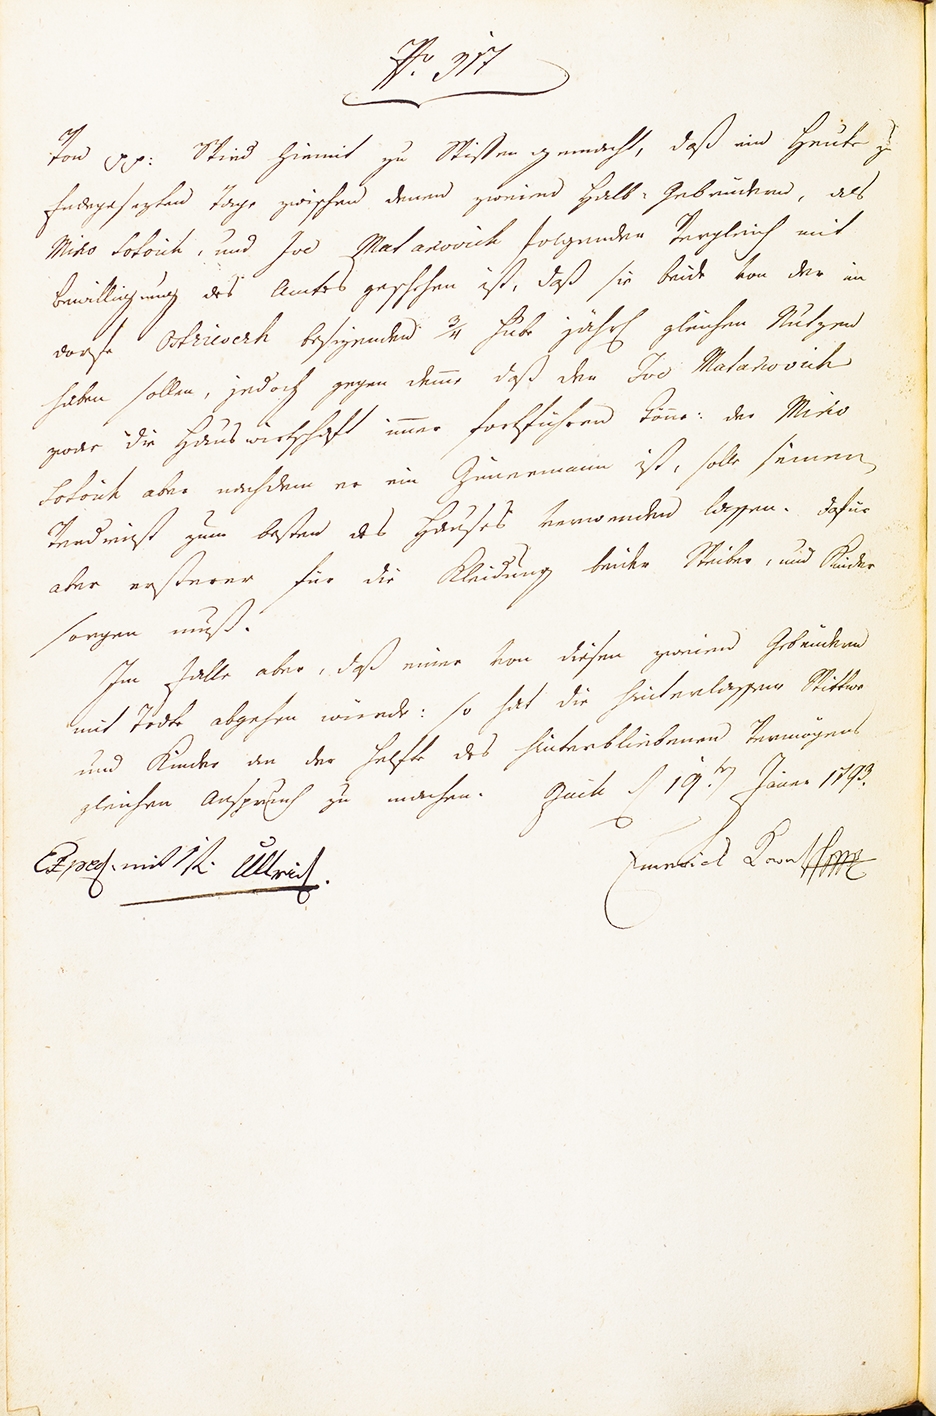 No. 317
Von pp: Wird hiemit zu Wissen gemacht, daß am Heute zu
Endegesezten Tage zwischen denen zweien Halb-Gebrüdern, als
Miko Sokoich, und Ivo Matanovich folgender Vergleich mit
Bewilligung des Amtes geschehen ist, daß sie beide von der im
Dorfe Ostrieverh besizenden 3/4 Hube jährl gleichen Nutzen
haben sollen, jedoch gegen deme, daß der Ivo Matanovich
zwar die Hauswirtschaft immer fortführen könne: der Miko
Sokoich aber nachdem er ein Zimermann ist, solle seinen
Verdienst zum besten des Hauses verwenden lassen. dafür
aber ersterer für die Kleidung beider Weiber, und Kinder
sorgen muß.
Im Falle aber, daß einer von diesen zweien Gebrüdern
mit Tode abgehen würde: so hat die hinterlassene Wittwe
und Kinder an der Helfte des hinterbliebenen Vermögens
gleichen Anspruch zu machen. 19ten Jäner 1793.
Exped. mit Ullrich.
Emerich